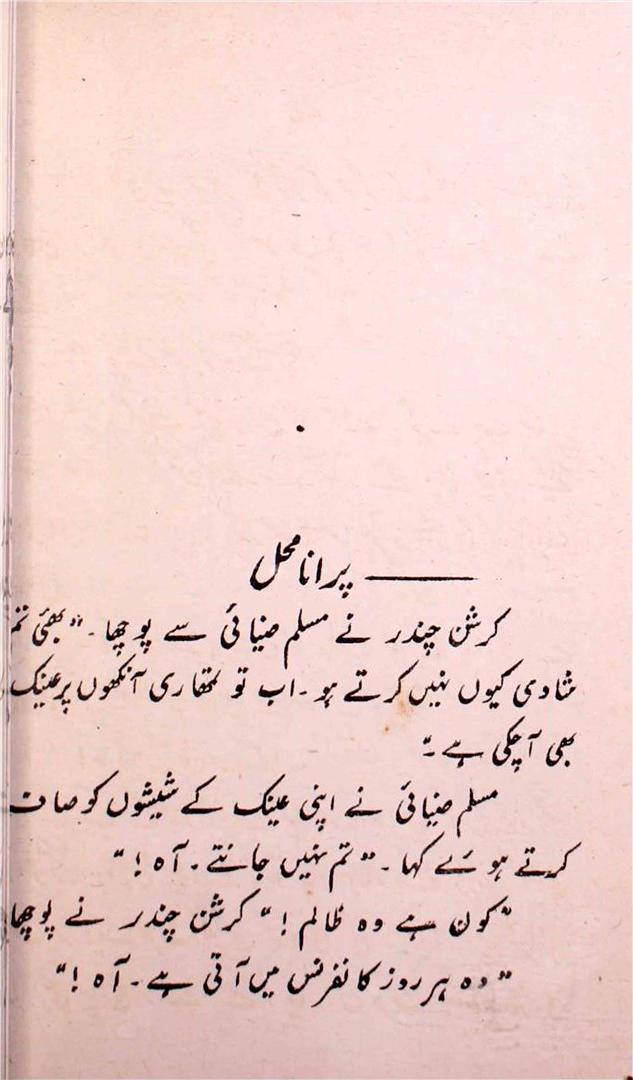 پرانا محل
کرشن چندر نے مسلم ضیائی سے پوچھا۔ "بھئی تم
شادی کیوں نہیں کرتے ہو۔ اب تو تمھاری آنکھوں پر عینک
بھی آچکی ہے۔"
مسلم ضیائی نے اپنی عینک کے شیشوں کو صاف
کرتے ہوئے کہا۔ "تم نہیں جانتے۔ آہ!"
"کون ہے وہ ظالم!" کرشن چندر نے پوچھا
"وہ ہر روز کانفرنس میں آتی ہے۔ آہ!"